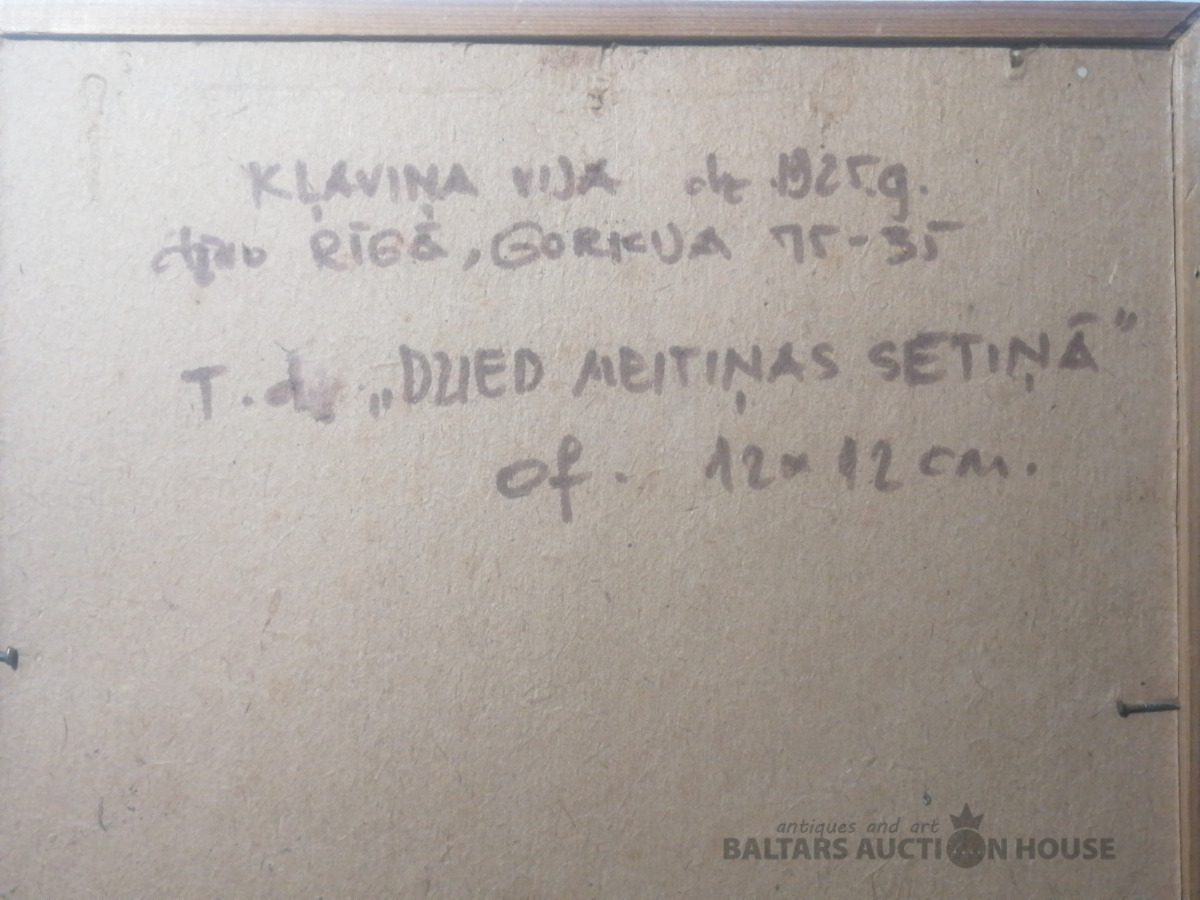 KĻAVIŅA VIJA dz 1925.g.
dzīvo RĪGĀ, GORKIJA 75-35
T.dz. „DZIED MEITIŅAS SĒTIŅĀ”
of. 12x12 cm.
antiques and art
BALTARS AUCTION HOUSE